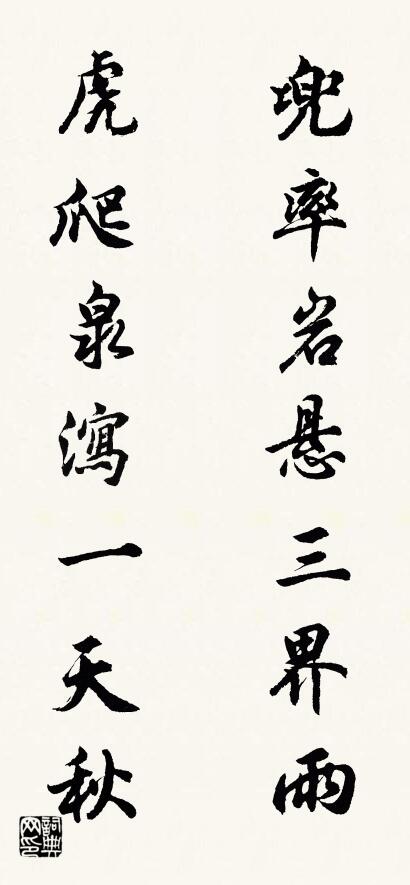 兜率岩悬三界雨
虎爬泉瀉一天秋
詞典网印